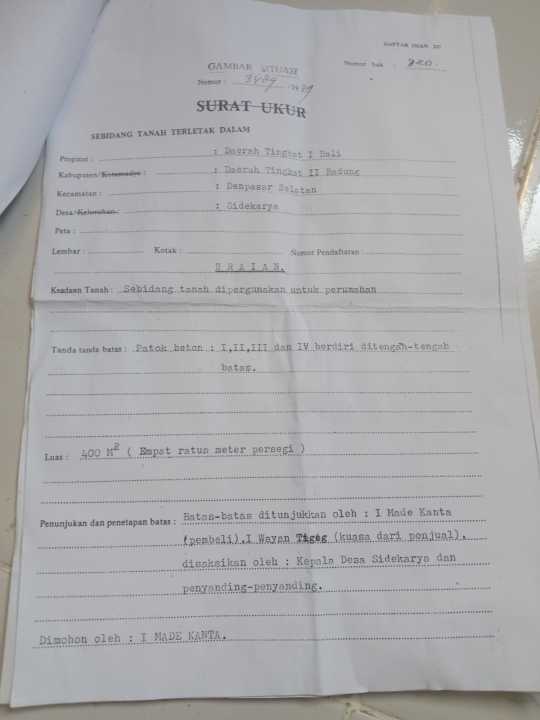 DAFTAR ISIAN
GAMBAR SITUASI
Nomor hak :
Nomor :
SURAT UKUR
SEBIDANG TANAH TERLETAK DALAM
Propinsi : : Daerah Tingkat I Bali
Kabupaten/Kotamadya : : Daerah Tingkat II Badung
Kecamatan : : Denpasar Selatan
Desa/Kelurahan : : Sidekarya
Peta :
Lembar : Kotak : Nomor Pendaftaran :
URAIAN.
Keadaan Tanah : Sebidang tanah dipergunakan untuk perumahan
Tanda tanda batas : Patok beton : I,II,III dan IV berdiri ditengah-tengah
batas.
Luas : 400 M2 ( Empat ratus meter persegi )
Penunjukan dan penetapan batas : Batas-batas ditunjukkan oleh : I Made Kanta
(pembeli).I Wayan Tigeg (kuasa dari penjual).
disaksikan oleh : Kepala Desa Sidekarya dan
penyanding-penyanding.
Dimohon oleh : I MADE KANTA.